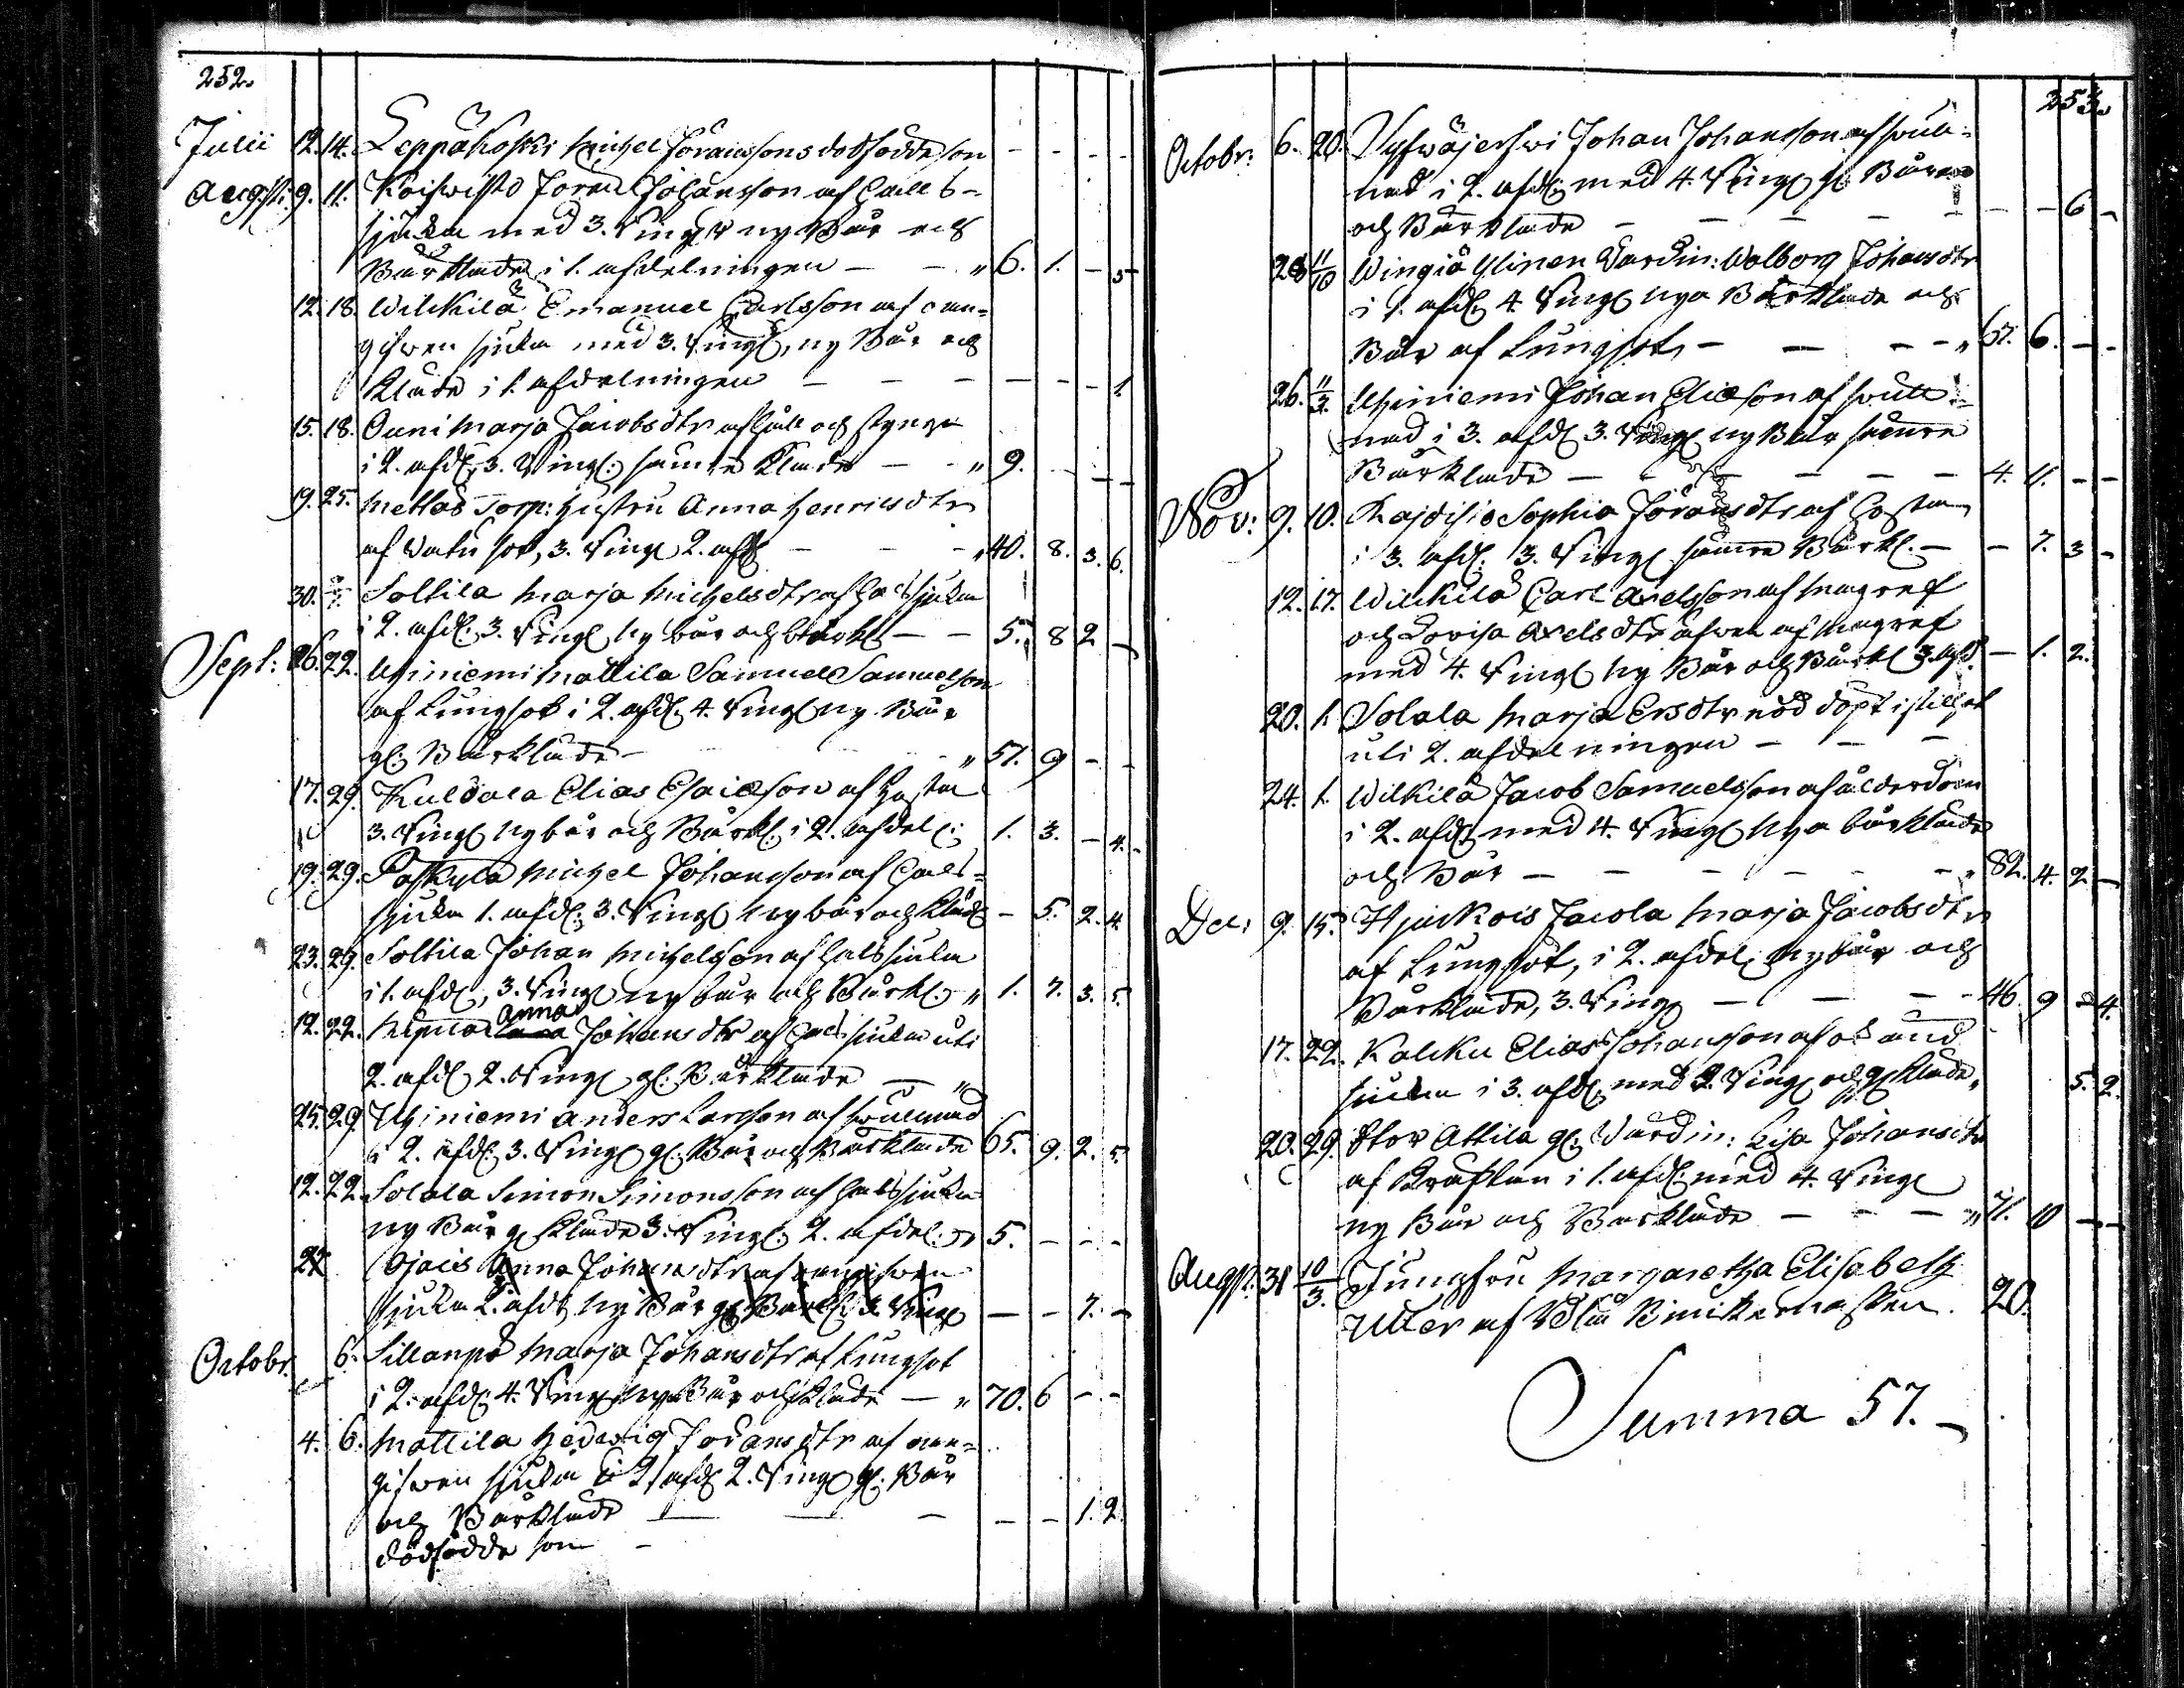 252.
Julii 12. 14. Leppäkoski Michel Joransons dödfödde son - - - -
Augsti. 9. 11. Koifvisto Joran Johansson af halls-
sjuka med 3. Ringl ny Bår och
Bårkläde i 1. afdelningen - - " 6. 1. - 5
12. 18. Wilckilä Emanuel Carlsson af oan-
gifven sjuka med 3. Ringl, ny Bår och
Kläde i 1. afdelningen - - - - - - 1.
15. 18. Ouni Marja Jacobsdtr af håll och styng
i 2. afdl. 3. Ringl: sämre Kläde - - " 9. - - -
19. 25. Mettäs Torp: hustru Anna Henricsdtr
af Vatusot, 3. Ringl 2. afdl - - - " 40. 8. 3. 6.
30. Soltila Marja Michelsdtr af halssjuka
i 2. afdl. 3. Ringl ny bår och bårkl - - 5. 8 2 -
Sept: 16. 22. Uhiniemi Mattila Samuel Samuelsson
af Lungsot i 2. afdl. 4. Ringl ny Bår
gl. Bårkläde - - " 57. 9 - -
17. 29. Kuldala Elias Esaiæson af hosta
3. Ringl ny bår och Bårkl: i 2. afdel: 1. 3. - 4.
19. 29. Paskyla Michel Johansson af hals-
sjuka 1. afdl. 3. Ringl ny bår och Kläde - 5. 2. 4.
23. 29. Soltila Johan Michelsson af halssjuka
i 1. afdl, 3. Ringl ny bår och Bårkl. " 1. 7. 3. 5.
12. 22. Anna Johansdtr af halssjuka uti
2. afdl 2. Ringl gl. Bårkläde - "
25. 29 Uhiniemi Anders Larsson af svullnad
i 2. afdl. 3. Ringl gl. Bår och Bårkläde 65. 9. 2. 5.
12. 22. Solala Simon Simonsson af halssjuka
ny Bår gl Kläde 3. Ringl. 2. afdel. " 5. - - -
Ojais Anna Johansdtr af oangifven
sjuka 2. afdl ny Bår gl Bårkl: 3. Ringl - - 7. -
Octobr. 6. Sillanpä Marja Johansdtr af Lungsot
i 2. afdl. 4. Ringl nya Bår och Kläde - " 70. 6 - -
4. 6. Mattila Hedewig Joransdtr af oan-
gifven sjuka i 2. afdl 2. Ringl gl. Bår
och Bårkläde - - - - - 1. 2.
dödfödde son -
253.
Octobr. 6. 20. Johan Johansson af svull-
nad i 2. afdl. med 4. Ringl Bår
och Bårkläde - - - - - - - 6 -
28 11/10 Wingiä Ylinen Vardin: Walborg Johansdtr
i 1. afdl. 4. Ringl nya Bårkläde och
Bår af Lungsot - - - - " 67. 6. - -
26. 11/3. Uhiniemi Johan Eliæson af svull-
nad i 3. afdl 3. Ringl ny Bår sämre
Bårkläde - - - - - - 4. 11. - -
Nov: 9. 10. Sophia Joransdtr af hosta
i 3. afdl. 3. Ringl sämre Bårkl. - - 7. 3 -
12. 17. Wilckilä Carl Axelsson af magref
och Lovisa Axelsdtr äfven af magref
med 4. Ringl ny Bår och Bårkl 3. afd. - 1. 2.
20. 1. Solala Marja Ersdtr nöd döpt i stillhet
uti 2. afdelningen - - -
24. 1. Wilkilä Jacob Samuelsson af ålderdom
i 2. afdl: med 4. Ringl nya bårkläde
och Bår - - - - - " 82. 4. 2 -
Dec: 9. 15. Jacola Marja Jacobsdtr
af Lungsot, i 2. afdel. ny bår och
Bårkläde, 3. Ringl - - - - 46. 9 2 4.
17. 22. Kalcku Elias Johansson af okänd
sjuka i 3. afdl. med 2. Ringl och gl Kläde, 5. 2.
20. 29. Stor Attila gl: Vardin: Lisa Johansdtr
af Kräftan i 1. afdl. med 4. Ringl
ny Bår och Bårkläde - - - " 71. 10 - -
Augst. 31 10/3. Jungfru Margaretha Elisabeth
Utter af 20.
Summa 57. -